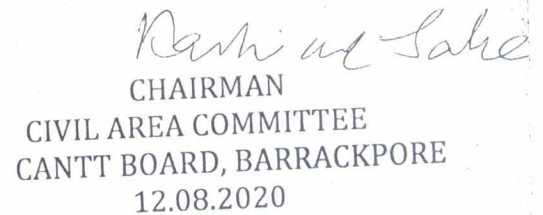 CHAIRMAN
CIVIL AREA COMMITTEE
CANTT BOARD, BARRACKPORE
12.08.2020